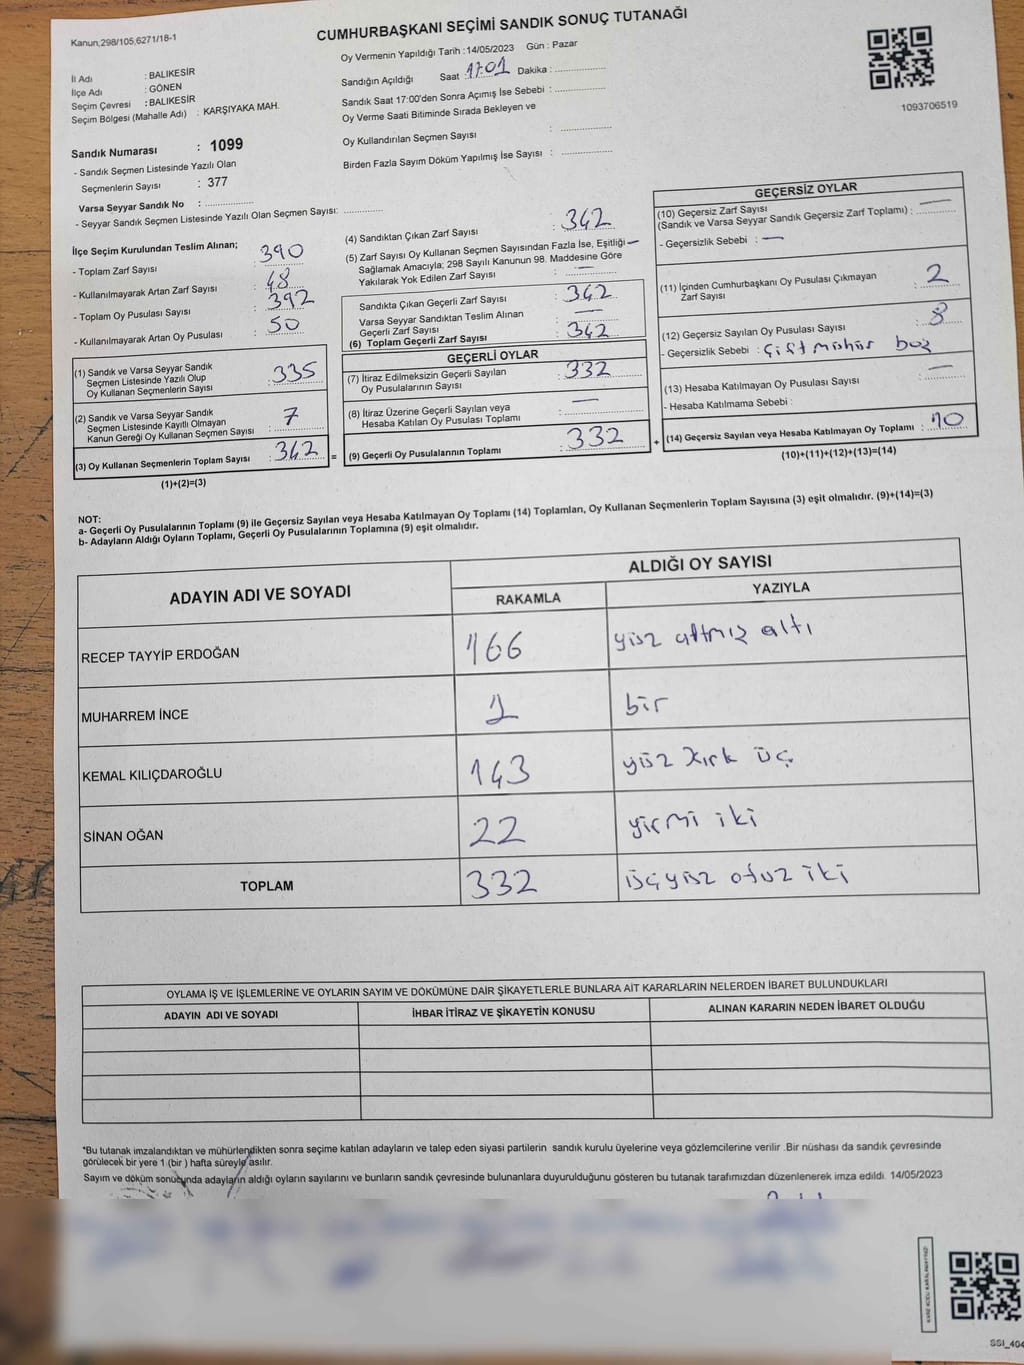 Kanun,298/105,6271/18-1
CUMHURBAŞKANI SEÇİMİ SANDIK SONUÇ TUTANAĞI
İl Adı : BALIKESİR
İlçe Adı : GÖNEN
Seçim Çevresi : BALIKESİR
Seçim Bölgesi (Mahalle Adı) : KARŞIYAKA MAH.
Sandık Numarası : 1099
- Sandık Seçmen Listesinde Yazılı Olan
Seçmenlerin Sayısı : 377
Varsa Seyyar Sandık No :
- Seyyar Sandık Seçmen Listesinde Yazılı Olan Seçmen Sayısı:
Oy Vermenin Yapıldığı Tarih :14/05/2023 Gün : Pazar
Sandığın Açıldığı Saat 17:01 Dakika :
Sandık Saat 17:00'den Sonra Açımış İse Sebebi :
Oy Verme Saati Bitiminde Sırada Bekleyen ve
Oy Kullandırılan Seçmen Sayısı :
Birden Fazla Sayım Döküm Yapılmış İse Sayısı :
1093706519
İlçe Seçim Kurulundan Teslim Alınan;
- Toplam Zarf Sayısı : 390
- Kullanılmayarak Artan Zarf Sayısı : 48
- Toplam Oy Pusulası Sayısı : 392
- Kullanılmayarak Artan Oy Pusulası : 50
(1) Sandık ve Varsa Seyyar Sandık
Seçmen Listesinde Yazılı Olup
Oy Kullanan Seçmenlerin Sayısı : 335
(2) Sandık ve Varsa Seyyar Sandık
Seçmen Listesinde Kayıtlı Olmayan
Kanun Gereği Oy Kullanan Seçmen Sayısı : 7
(3) Oy Kullanan Seçmenlerin Toplam Sayısı : 342
(1)+(2)=(3)
=
(4) Sandıktan Çıkan Zarf Sayısı : 342
(5) Zarf Sayısı Oy Kullanan Seçmen Sayısından Fazla İse, Eşitliği —
Sağlamak Amacıyla; 298 Sayılı Kanunun 98. Maddesine Göre
Yakılarak Yok Edilen Zarf Sayısı : —
Sandıkta Çıkan Geçerli Zarf Sayısı : 342
Varsa Seyyar Sandıktan Teslim Alınan
Geçerli Zarf Sayısı : —
(6) Toplam Geçerli Zarf Sayısı : 342
GEÇERLİ OYLAR
(7) İtiraz Edilmeksizin Geçerli Sayılan
Oy Pusulalarının Sayısı : 332
(8) İtiraz Üzerine Geçerli Sayılan veya
Hesaba Katılan Oy Pusulası Toplamı : —
(9) Geçerli Oy Pusulalarının Toplamı : 332
+
GEÇERSİZ OYLAR
(10) Geçersiz Zarf Sayısı
(Sandık ve Varsa Seyyar Sandık Geçersiz Zarf Toplamı) : —
- Geçersizlik Sebebi : —
(11) İçinden Cumhurbaşkanı Oy Pusulası Çıkmayan
Zarf Sayısı : 2
(12) Geçersiz Sayılan Oy Pusulası Sayısı : 8
- Geçersizlik Sebebi : Çift mühür boş
(13) Hesaba Katılmayan Oy Pusulası Sayısı : —
- Hesaba Katılmama Sebebi :
(14) Geçersiz Sayılan veya Hesaba Katılmayan Oy Toplamı : 10
(10)+(11)+(12)+(13)=(14)
NOT:
a- Geçerli Oy Pusulalarının Toplamı (9) ile Geçersiz Sayılan veya Hesaba Katılmayan Oy Toplamı (14) Toplamları, Oy Kullanan Seçmenlerin Toplam Sayısına (3) eşit olmalıdır. (9)+(14)=(3)
b- Adayların Aldığı Oyların Toplamı, Geçerli Oy Pusulalarının Toplamına (9) eşit olmalıdır.
ADAYIN ADI VE SOYADI ALDIĞI OY SAYISI
RAKAMLA YAZIYLA
RECEP TAYYİP ERDOĞAN 166 yüz altmış altı
MUHARREM İNCE 1 bir
KEMAL KILIÇDAROĞLU 143 yüz kırk üç
SİNAN OĞAN 22 yirmi iki
TOPLAM 332 üçyüz otuz iki
OYLAMA İŞ VE İŞLEMLERİNE VE OYLARIN SAYIM VE DÖKÜMÜNE DAİR ŞİKAYETLERLE BUNLARA AİT KARARLARIN NELERDEN İBARET BULUNDUKLARI
ADAYIN ADI VE SOYADI İHBAR İTİRAZ VE ŞİKAYETİN KONUSU ALINAN KARARIN NEDEN İBARET OLDUĞU
*Bu tutanak imzalandıktan ve mühürlendikten sonra seçime katılan adayların ve talep eden siyasi partilerin sandık kurulu üyelerine veya gözlemcilerine verilir .Bir nüshası da sandık çevresinde
görülecek bir yere 1 (bir ) hafta süreyle asılır.
Sayım ve döküm sonucunda adayların aldığı oyların sayılarını ve bunların sandık çevresinde bulunanlara duyurulduğunu gösteren bu tutanak tarafımızdan düzenlenerek imza edildi. 14/05/2023
SSI_404